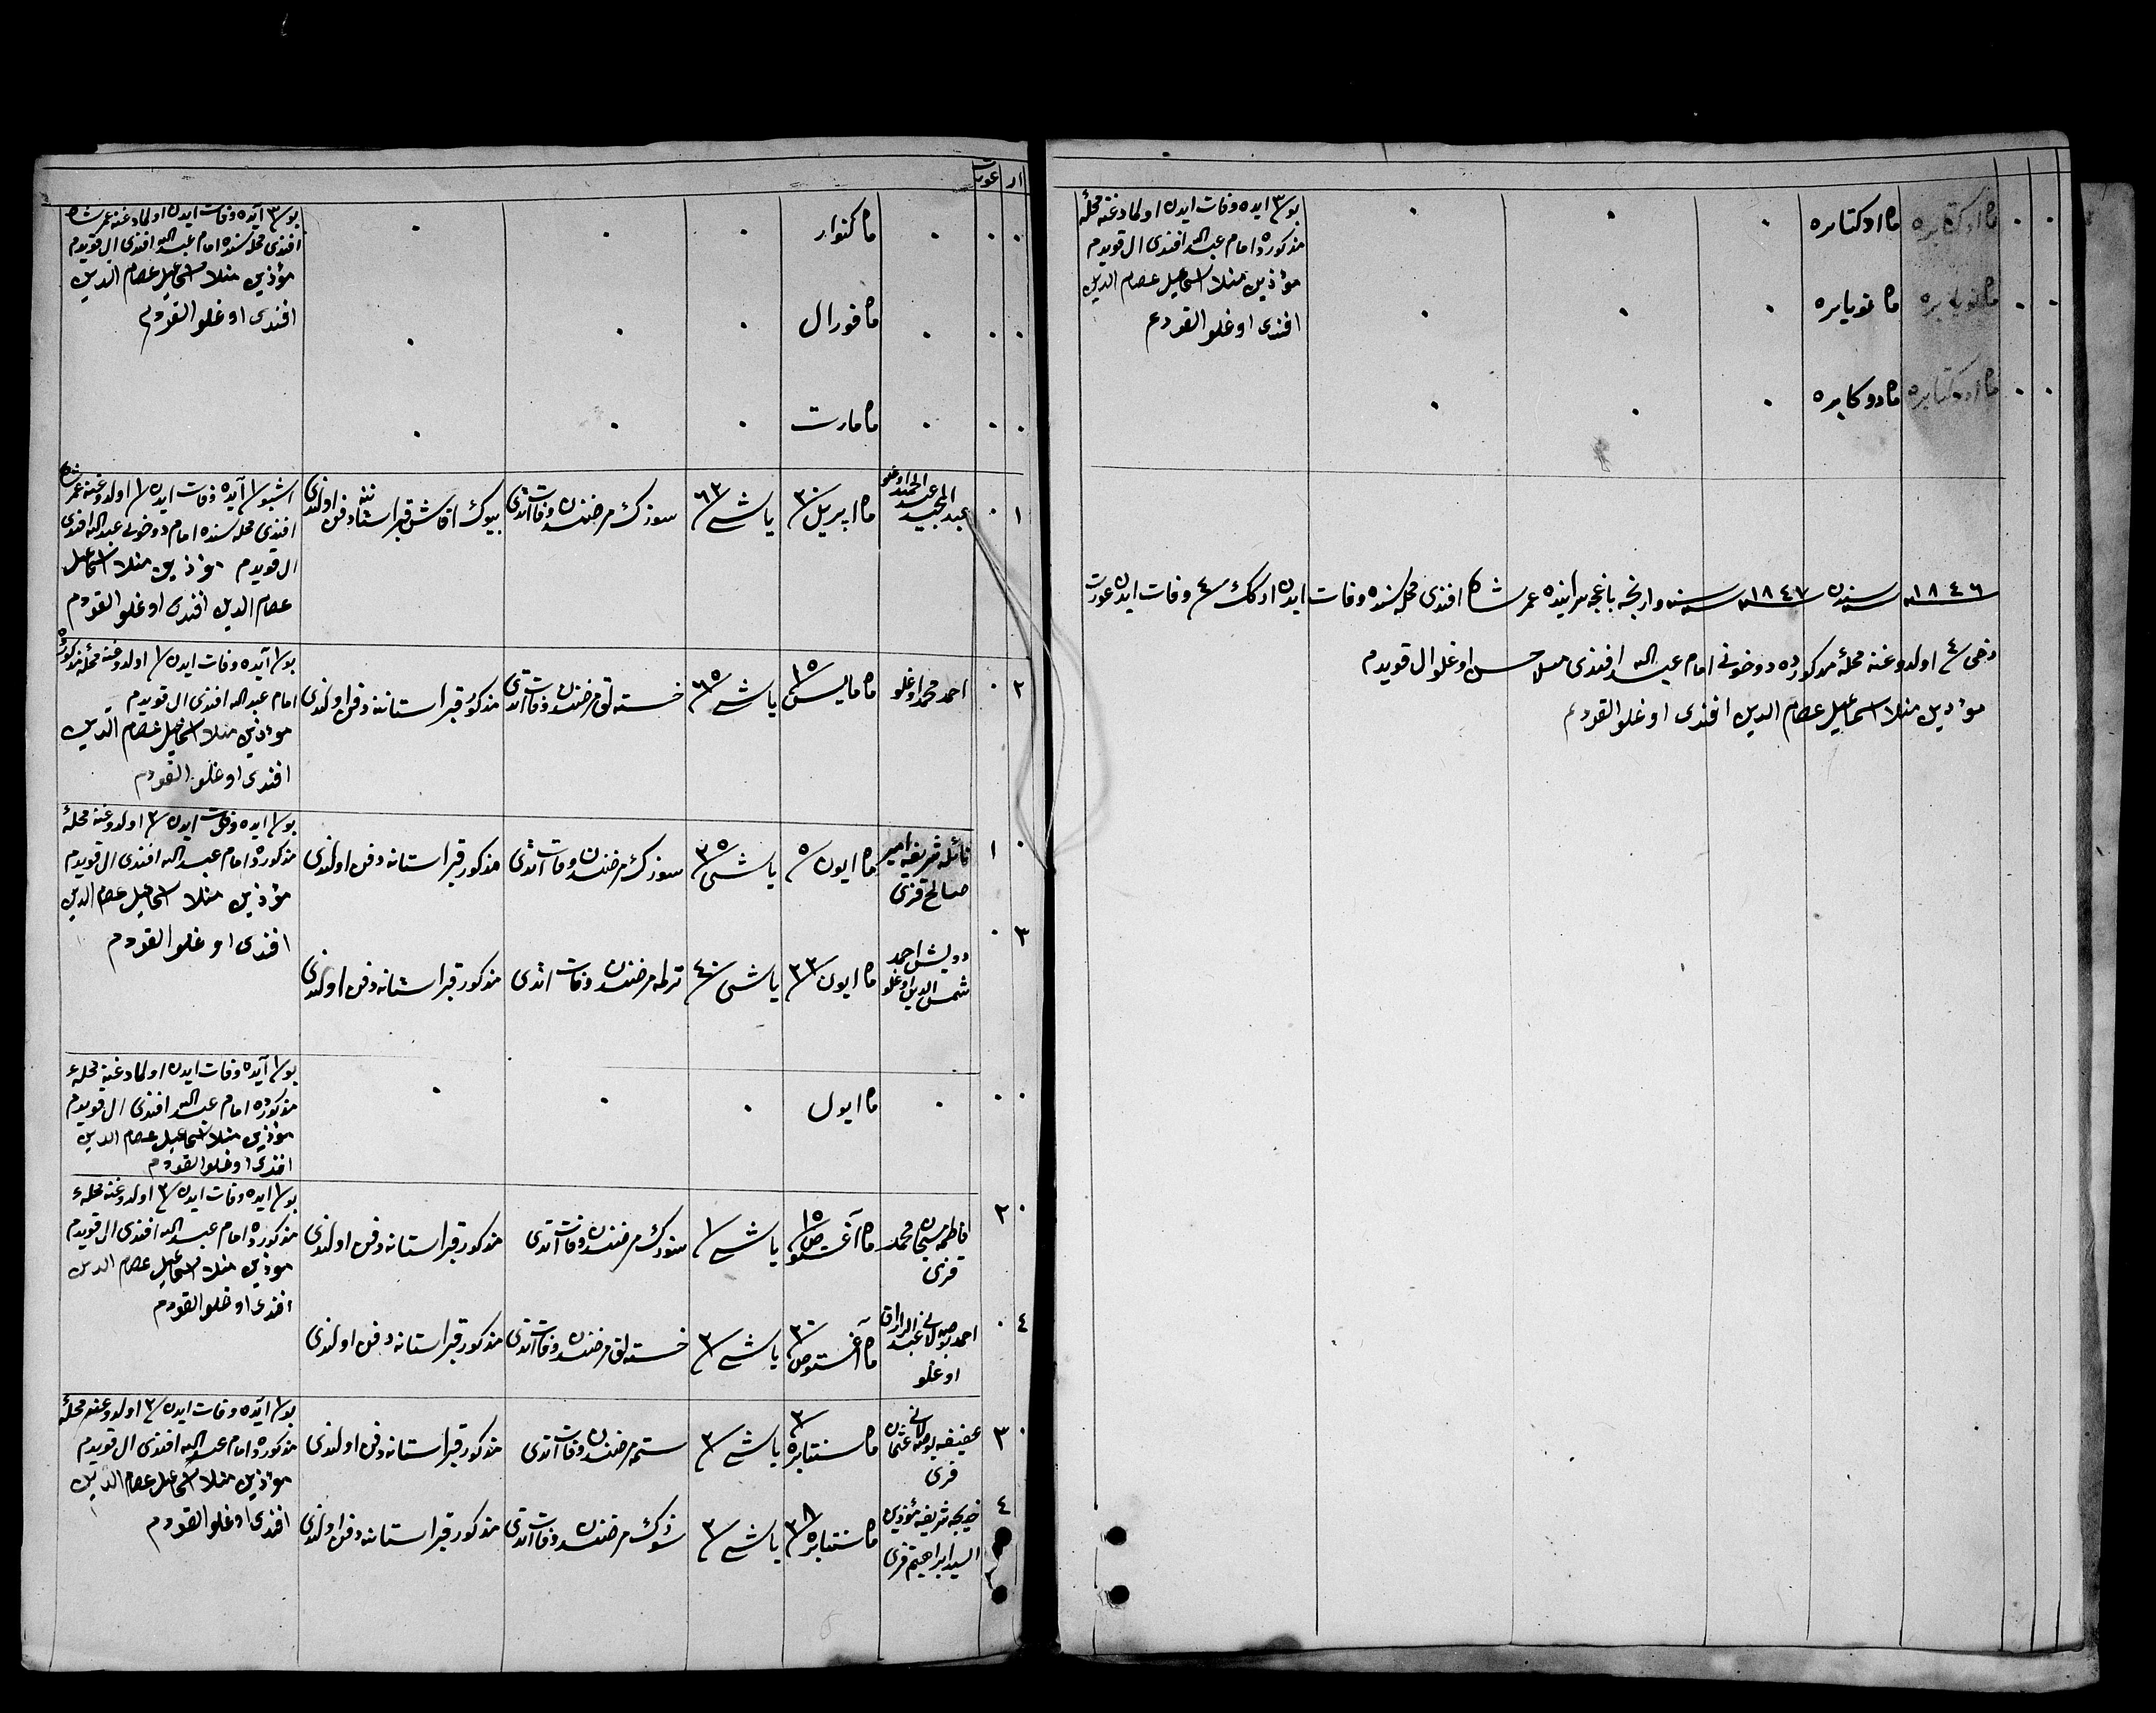 ار عورت
٠ ٠ ٠ ماه كنوار ٠ ٠ ٠
بو ٣ آيده وفات ايدن اولمادغنه عمر شاه
افندى محله سنده امام عبد الله افندى ال قويدم
مؤذين منلا اسماعيل عصام الدين
افندى اوغلو القودم
٠ ٠ ٠ ماه فورال ٠ ٠ ٠
٠ ٠ ٠ ماه مارت ٠ ٠ ٠
١ ٠ عبد المجيد عبد الحميد اوغلو ماه اپريل ٣٠ ياشى ٦٢ سوزك مرضندن وفات اتدى
بيوك اقاش قبراستاننه دفن اولندى
اشبو ١ آيده وفات ايدن ١ اولدوغنه عمر شاه
افندى محله سنده امام دوخونى عبد الله افندى
ال قويدم مؤذين منلا اسماعيل
عصام الدين افندى اوغلو القودم
٢ ٠ احمد محمد اوغلو ماه مايس ١٥ ياشى ٦٥ خسته لق مرضندن وفات اتدى مذكور قبراستانه دفن اولندى
بو ١ آيده وفات ايدن ١ اولدوغنه محلهٔ مذكورده
امام عبد الله افندى ال قويدم
مؤذين منلا اسماعيل عصام الدين
افندى اوغلو القودم
٠ ١ شريفه امير
صالح قزى
ماه ايون ٥ ياشى ٣٥ سوزك مرضندن وفات اتدى مذكور قبراستانه دفن اولندى
بو ١ ايده وفات ايدن ٢ اولدوغنه محلهٔ
مذكورده امام عبد الله افندى ال قويدم
مؤذين منلا اسماعيل عصام الدين
افندى اوغلو القودم
٣ ٠ درويش احمد
شمس الدين اوغلو
ماه ايون ٢٣ ياشى ٤٠ ترله مرضندن وفات اتدى مذكور قبراستانه دفن اولندى
٠ ٠ ٠ ماه ايول ٠ ٠ ٠
بو ١ آيده وفات ايدن اولمادغنه محلهٔ
مذكورده امام عبد الله افندى ال قويدم
مؤذين منلا اسماعيل عصام الدين
افندى اوغلو القودم
٠ ٢ فاطمه محمد
قزى
ماه آغستوص ١٥ ياشى ١ سوزك مرضندن وفات اتدى مذكور قبراستانه دفن اولندى
بو ١ ايده وفات ايدن ٢ اولدوغنه محلهٔ
مذكورده امام عبد الله افندى ال قويدم
مؤذين منلا اسماعيل عصام الدين
افندى اوغلو القودم
٤ ٠ احمد عبد الرزاق
اوغلو
ماه آغستوص ٣٠ ياشى ٣ خسته لق مرضندن وفات اتدى مذكور قبراستانه دفن اولندى
٠ ٣ عفيفه عثمان
قزى
ماه سنتابره ٣ ياشى ٣ ستمه مرضندن وفات اتدى مذكور قبراستانه دفن اولندى
بو ١ آيده وفات ايدن ٢ اولدوغنه محلهٔ
مذكورده امام عبد الله افندى ال قويدم
مؤذين منلا اسماعيل عصام الدين
افندى اوغلو القودم
٤ خديجه شريفه مؤذين
السيد ابراهيم قزى
ماه سنتابره ٢٨ ياشى ٣ سوزك مرضندن وفات اتدى مذكور قبراستانه دفن اولندى
٠ ٠ ماه اوكتابره ماه اوكتابره ٠ ٠ ٠
بو ٣ ايده وفات ايدن اولمادغنه محلهٔ
مذكورده امام عبد الله افندى ال قويدم
مؤذين منلا اسماعيل عصام الدين
افندى اوغلو القودم
٠ ٠ ماه نويابره ماه نويابره ٠ ٠ ٠
٠ ٠ ماه اوكتابره ماه دوكابره ٠ ٠ ٠
١٨٤٦ سنه سندن ١٨٤٧ سنه سنه وارنجه باغچه سراينده عمر شاه افندى محله سنده وفات ايدن اركك ٤ وفات ايدن عورت
دخى ٤ اولدوغنه محلهٔ مذكورده دوخونى امام عبد الله افندى حسن اوغلو ال قويدم
مؤذين منلا اسماعيل عصام الدين افندى اوغلو القودم